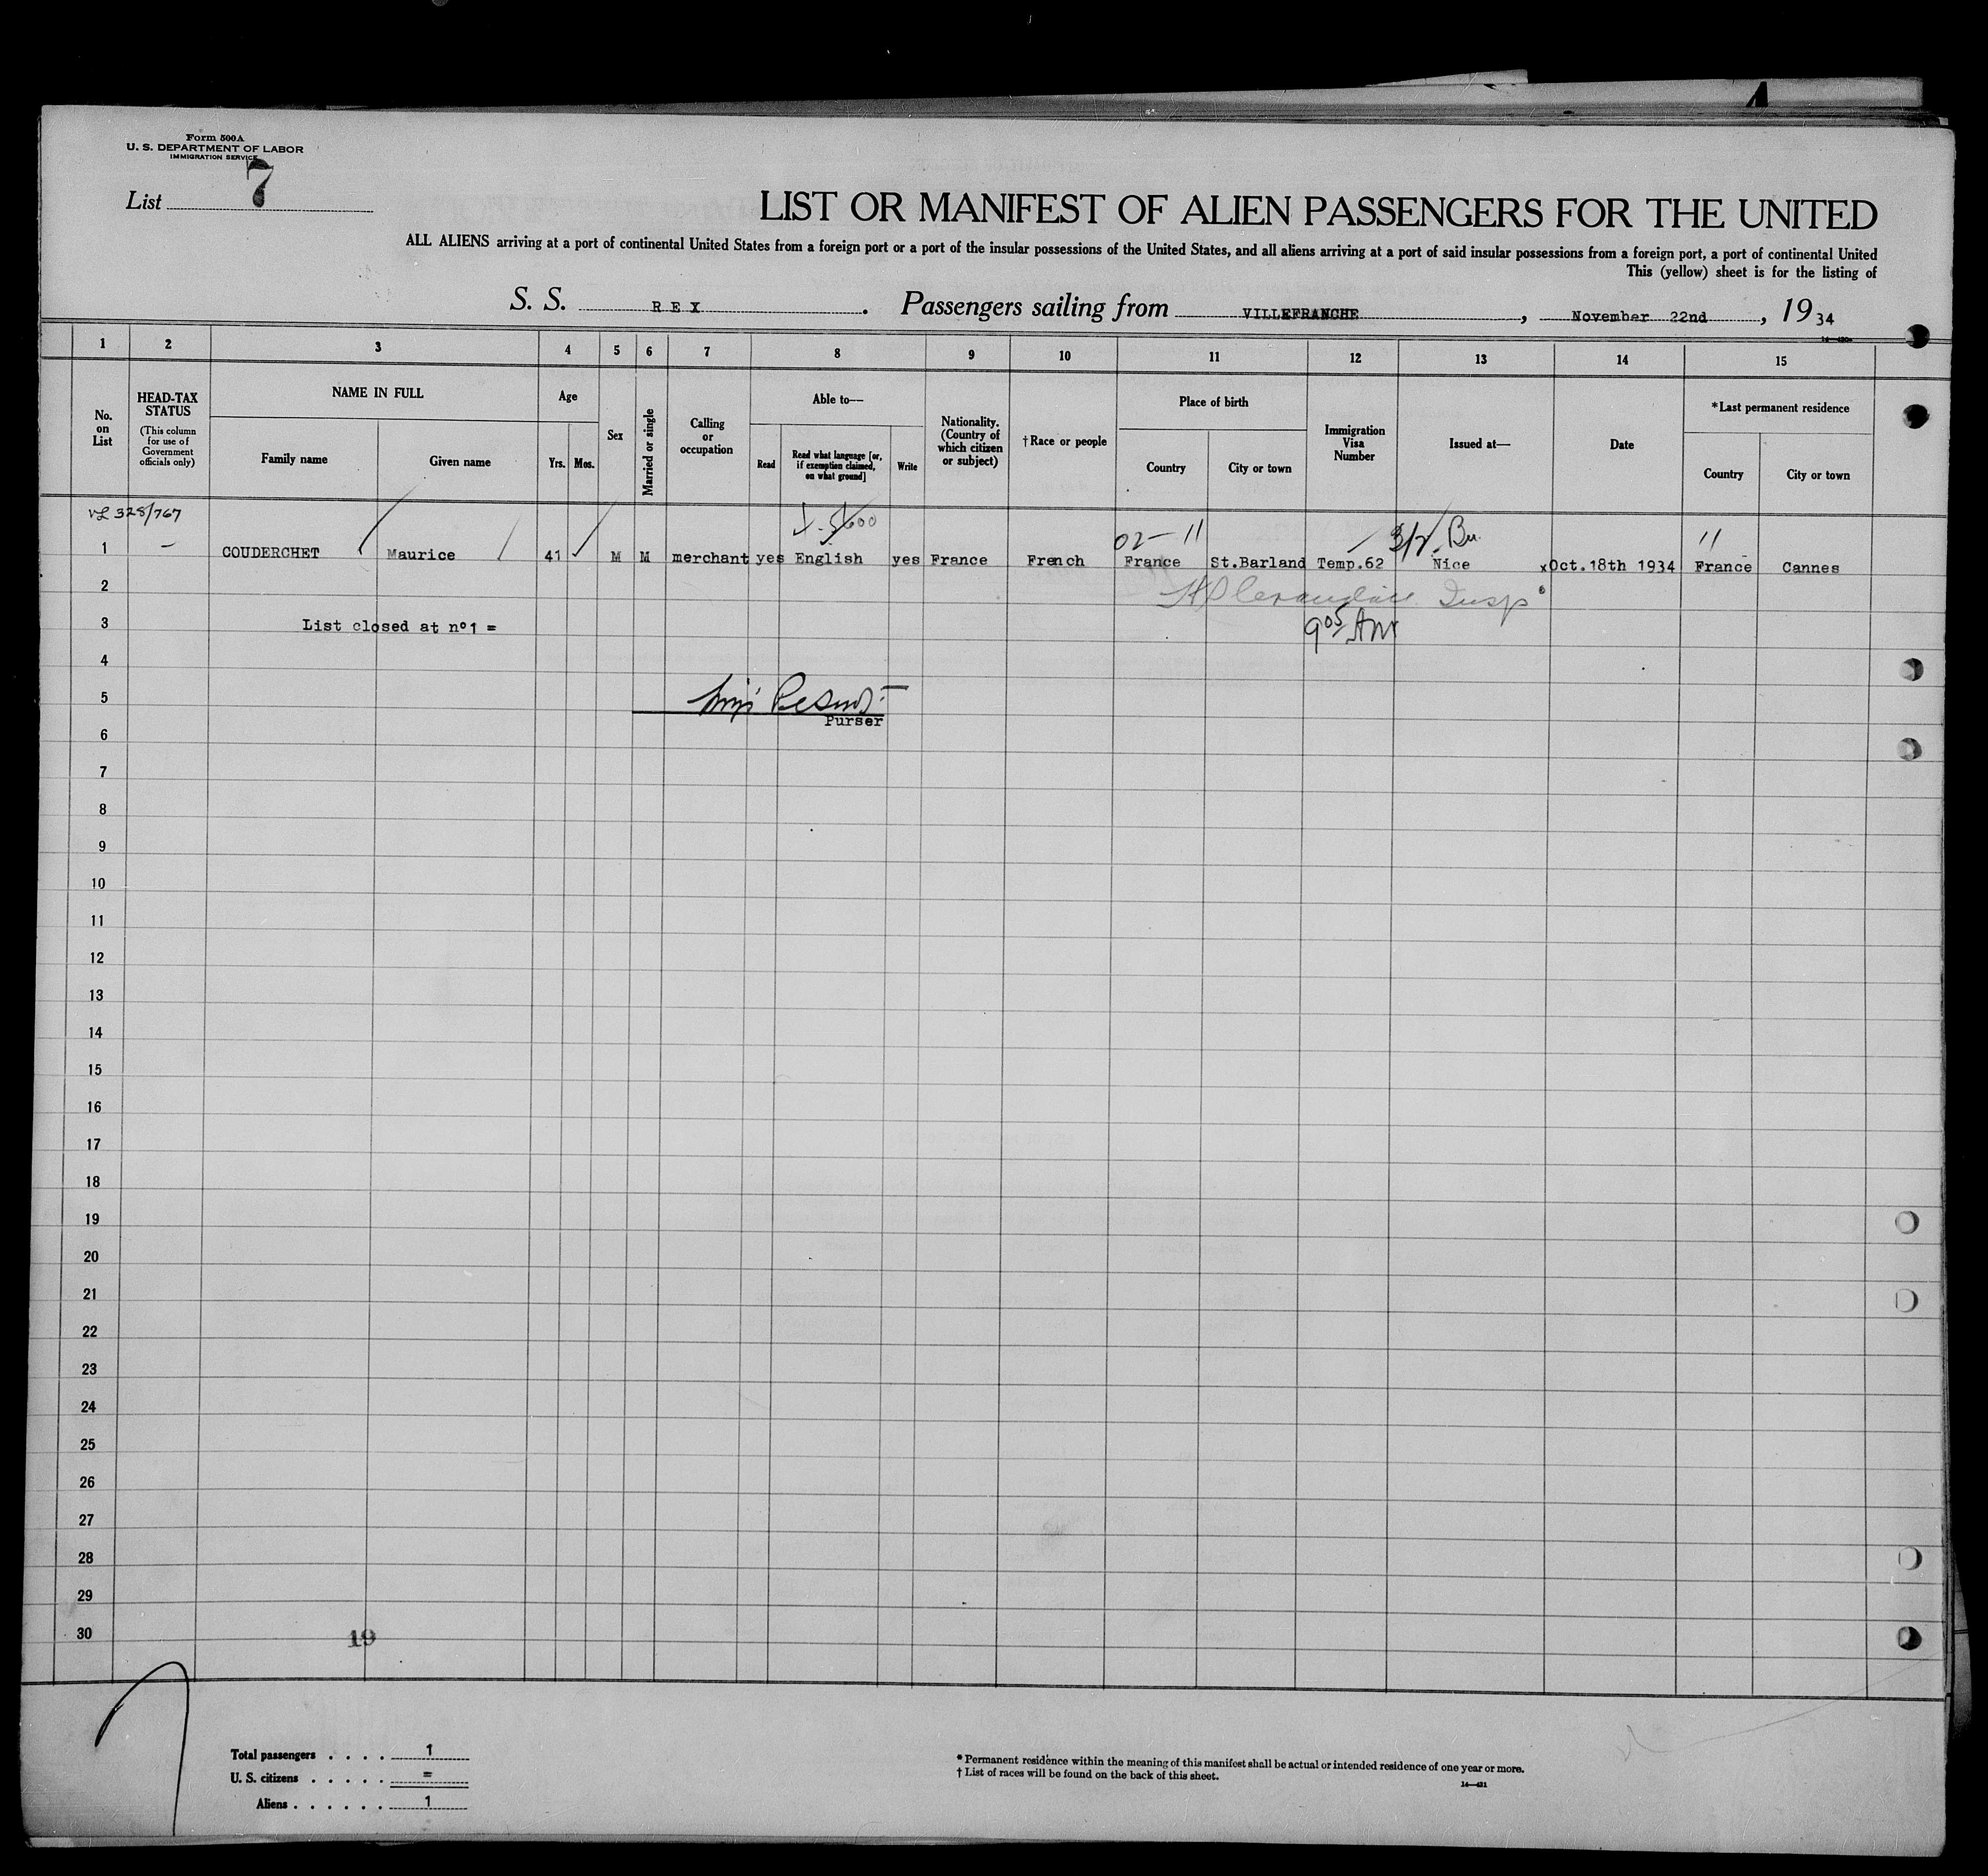 Form 500A
U. S. DEPARTMENT OF LABOR
IMMIGRATION SERVICE
List 7
LIST OR MANIFEST OF ALIEN PASSENGERS FOR THE UNITED
ALL ALIENS arriving at a port of continental United States from a foreign port or a port of the insular possessions of the United States, and all aliens arriving at a port of said insular possessions from a foreign port, a port of continental United
This (yellow) sheet is for the listing of
S. S. REX. Passengers sailing from VILLEFRANCHE, November 22nd, 1934
1 2 3 4 5 6 7 8 9 10 11 12 13 14 15
No. on List
HEAD-TAX STATUS
(This column for use of Government officials only)
NAME IN FULL
Family name
Given name
Age
Yrs. Mos.
Sex
Married or single
Calling or occupation
Able to—
Read
Read what language [or, if exemption claimed, on what ground]
Write
Nationality. (Country of which citizen or subject)
†Race or people
Place of birth
Country
City or town
Immigration Visa Number
Issued at—
Date
*Last permanent residence
Country
City or town
328/767
02- 11
11
1 – COUDERCHET Maurice 41 M M merchant yes English yes France French France St.Barland Temp.62 Nice xOct.18th 1934 France Cannes
2
3 List closed at nº1 =
905
4
5
Purser
6
7
8
9
10
11
12
13
14
15
16
17
18
19
20
21
22
23
24
25
26
27
28
29
30
19
Total passengers . . . . 1
U. S. citizens . . . . . =
Aliens . . . . . . 1
* Permanent residence within the meaning of this manifest shall be actual or intended residence of one year or more.
† List of races will be found on the back of this sheet.
14—421